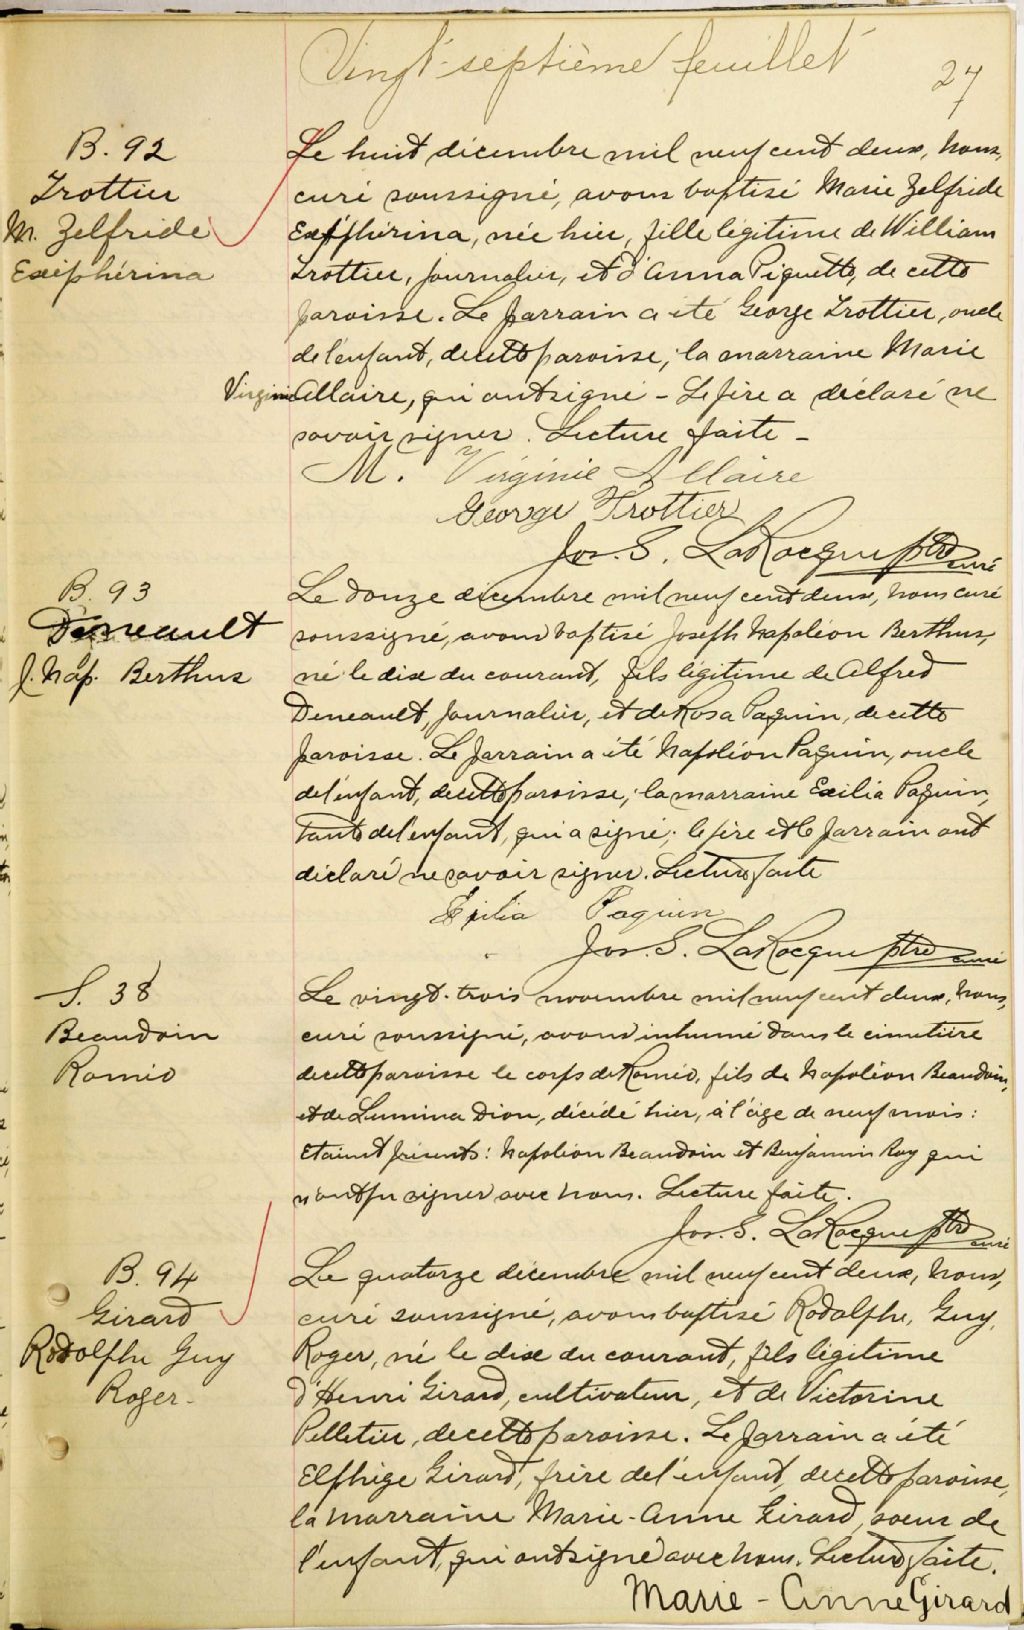 Vingt-septième feuillet
27
B. 92
Trottier
M. Zelfride
Exéphérina
Le huit décembre mil neuf cent deux, nous,
curé soussigné, avons baptisé Marie Zelfride
Exéphérina, née hier, fille légitime de William
Trottier, journalier, et d'Anna Piquette, de cette
paroisse. Le parrain a été George Trottier, oncle
de l'enfant, de cette paroisse; la marraine Marie
Virginie Allaire, qui ont signé - Le père a déclaré ne
savoir signer. Lecture faite -
M. Virginie Allaire
George Trottier
Jos. S. LaRocque ptre curé
B. 93
Deneault
J. Nap. Berthus
Le douze décembre mil neuf cent deux, nous curé
soussigné, avons baptisé Joseph Napoléon Berthus,
né le dix du courant, fils légitime de Alfred
Deneault, journalier, et de Rosa Paquin, de cette
paroisse. Le parrain a été Napoléon Paquin, oncle
de l'enfant, de cette paroisse; la marraine Exilia Paquin,
tante de l'enfant, qui a signé; le père et le parrain ont
déclaré ne savoir signer. Lecture faite
Exilia Paquin
Jos. S. LaRocque ptre curé
S. 38
Beaudoin
Roméo
Le vingt-trois novembre mil neuf cent deux, nous,
curé soussigné, avons inhumé dans le cimetière
de cette paroisse le corps de Roméo, fils de Napoléon Beaudoin,
et de Lumina Dion, décédé hier, à l'âge de neuf mois:
Etaient présents: Napoléon Beaudoin et Benjamin Roy qui
n'ont pu signer avec nous. Lecture faite.
Jos. S. LaRocque ptre curé
B. 94
Girard
Rodolphe Guy
Roger-
Le quatorze décembre mil neuf cent deux, nous,
curé soussigné, avons baptisé Rodolphe, Guy,
Roger, né le dix du courant, fils légitime
d'Henri Girard, cultivateur, et de Victorine
Pelletier, de cette paroisse. Le parrain a été
Elphège Girard, frère de l'enfant, de cette paroisse,
la marraine Marie-Anne Girard, soeur de
l'enfant, qui ont signé avec nous. Lecture faite.
Marie-Anne Girard